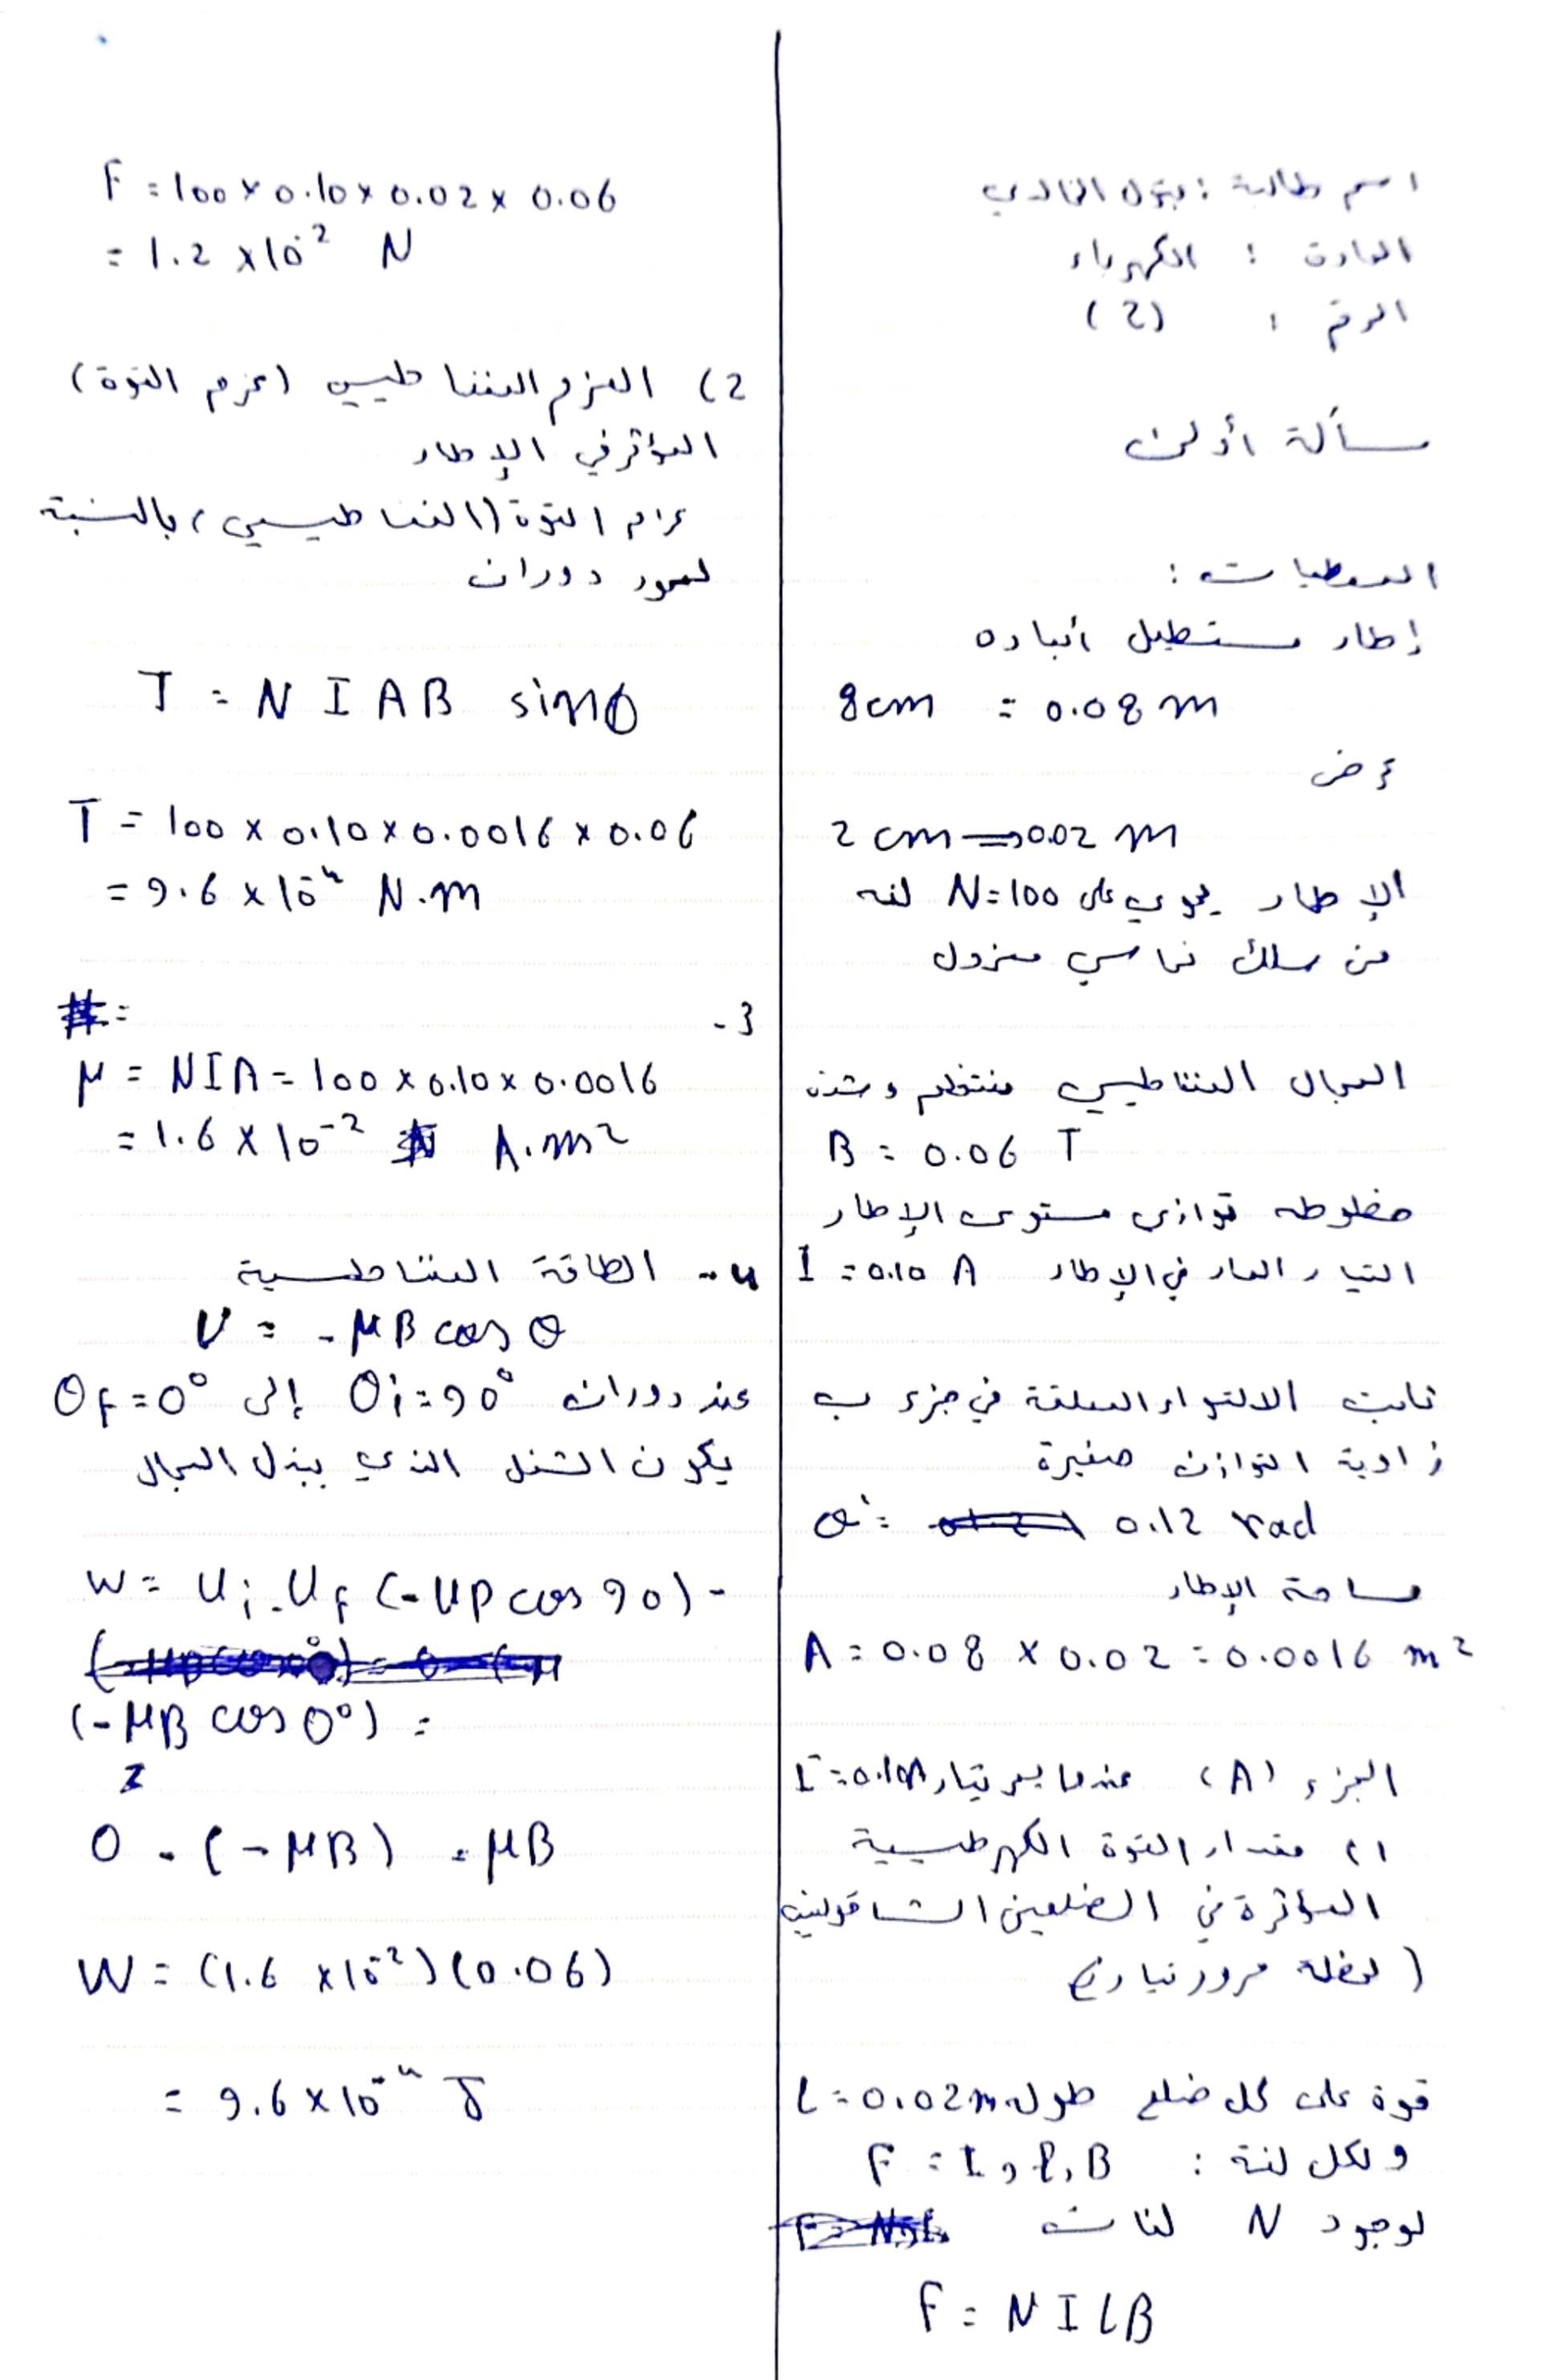 اسم طالبة : بتول الخالدي
المادة : الكهرباء
الرقم : (2)
مسألة أولى
المعطيات :
إطار مستطيل أبعاده
8cm = 0.08 m
عرض
2 cm ⇒ 0.02 m
الإطار يحوي على N=100 لفه
من سلك نحاسي معزول
المجال المغناطيسي منتظم وشدته
B = 0.06 T
خطوطه توازي مستوى الإطار
التيار المار في الإطار I = 0.10 A
ثابت الالتواء المعلقة في جزء ب
زاوية التوازن صغيرة
θ' = 0.12 rad
مساحة الإطار
A = 0.08 × 0.02 = 0.0016 m²
الجزء (A) عندما يمر تيار I = 0.10A
1) مقدار القوة الكهرطيسية
المؤثرة في الضلعين الشاقوليين
(لحظة مرور تيار)
قوة على كل ضلع طول L = 0.02m
ولكل لفة : F = I, l, B
لوجود N لفات
F = N I L B
F = 100 × 0.10 × 0.02 × 0.06
= 1.2 × 10⁻² N
2) العزم المغناطيسي (عزم القوة)
المؤثر في الإطار
عزم القوة (المغناطيسي) بالنسبة
لمحور دوران
T = N I A B sinθ
T = 100 × 0.10 × 0.0016 × 0.06
= 9.6 × 10⁻⁴ N.m
3-
=
μ = NIA = 100 × 0.10 × 0.0016
= 1.6 × 10⁻² A.m²
4- الطاقة المغناطيسية
U = - μB cos θ
عند دوران θi = 90° إلى θf = 0°
يكون الشغل الذي يبذل المجال
W = Ui - Uf (-μB cos 90) -
(-μB cos 0°) =
0 - (-μB) = μB
W = (1.6 × 10⁻²)(0.06)
= 9.6 × 10⁻⁴ J